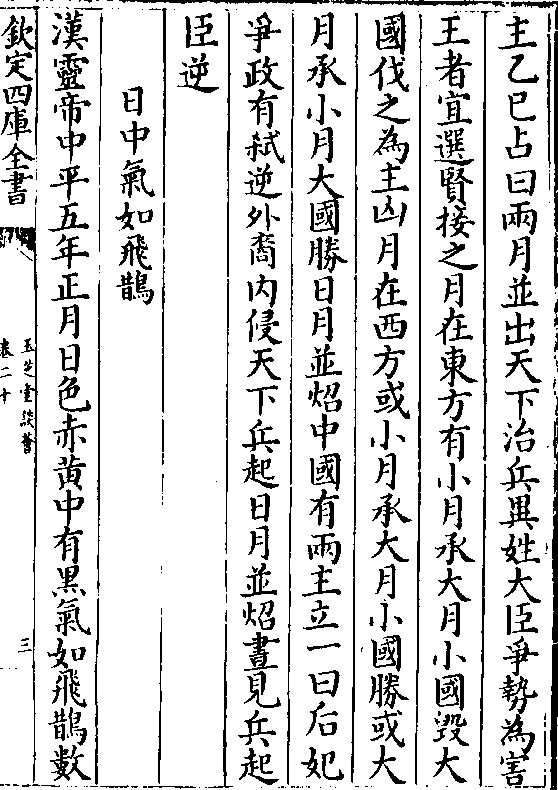 主乙巳占曰兩月並出天下治兵異姓大臣爭勢為害
王者宜選賢接之月在東方有小月承大月小國毀大
國伐之為主凶月在西方或小月承大月小國勝或大
月承小月大國勝日月並炤中國有兩主立一曰后妃
爭政有弑逆外裔内侵天下兵起日月並炤晝見兵起
臣逆
日中氣如飛鵲
漢靈帝中平五年正月日色赤黄中有黑氣如飛鵲數
欽定四庫全書
玉芝堂談薈
卷二十
三